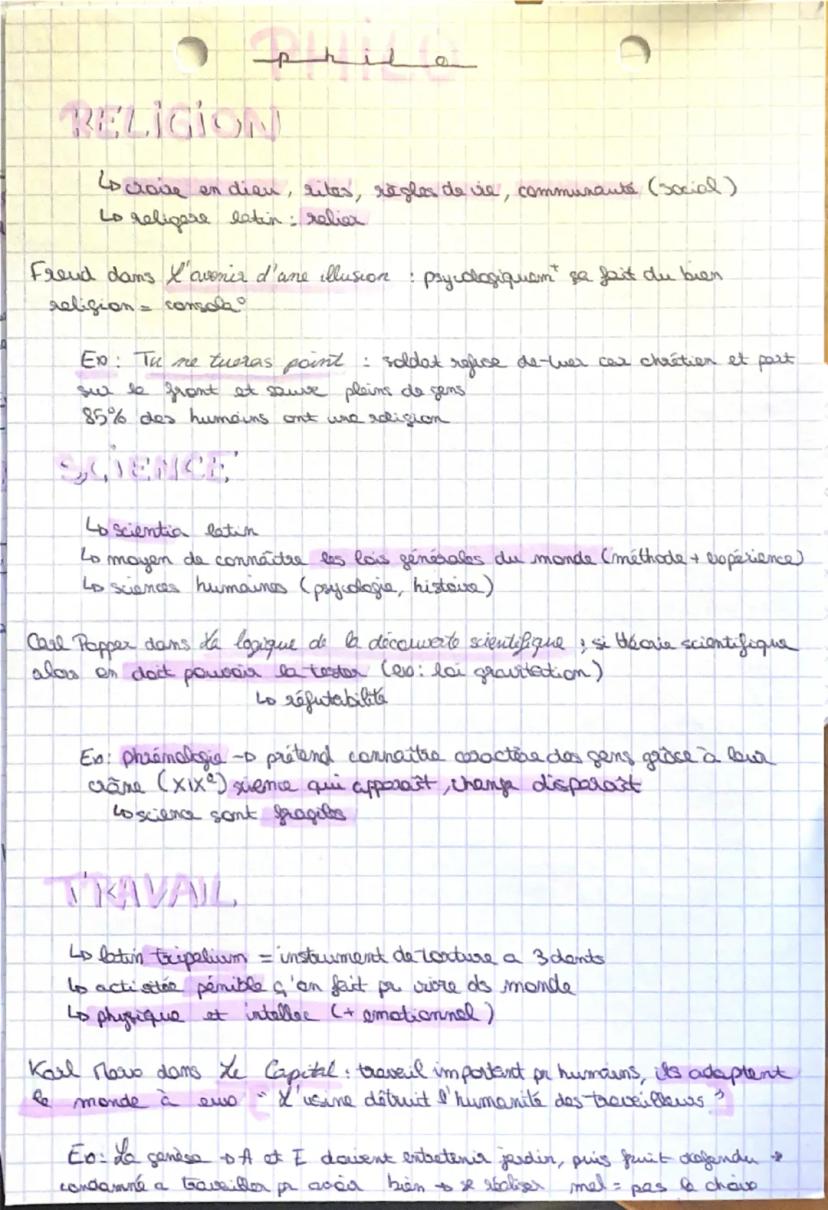 PHILO
philo
RELIGION
↳ croire en dieu, rites, règles de vie, communauté (social)
↳ religere latin : relier
Freud dans L'avenir d'une illusion : psycologiquem^t sa fait du bien
religion = consola°
Ex : Tu ne tueras point : soldat refuse de tuer car chrétien et part
sur le front et sauve pleins de gens
85% des humains ont une religion
SCIENCE
↳ scientia latin
↳ moyen de connaître les lois générales du monde (méthode + expérience)
↳ sciences humaines (psycologie, histoire)
Carl Popper dans La logique de la découverte scientifique : si théorie scientifique
alors on doit pouvoir la tester (ex : loi gravitation)
↳ réfutabilité
Ex : phrénologie → prétend connaître caractère des gens grâce à leur
crâne (XIX^e) science qui apparaît, change disparaît
↳ science sont fragiles
TRAVAIL
↳ latin tripalium = instrument de torture a 3 dents
↳ activitée pénible q'on fait pr vivre ds monde
↳ physique et intellec (+ emotionnel)
Karl Marx dans Le Capital : travail important pr humains, ils adaptent
le monde à eux "L'usine détruit l'humanité des travailleurs"
Ex : La genèse → A et E doivent entretenir jardin, puis fruit défendu →
condamné a travailler pr avoir bien → se réaliser mal = pas le choix